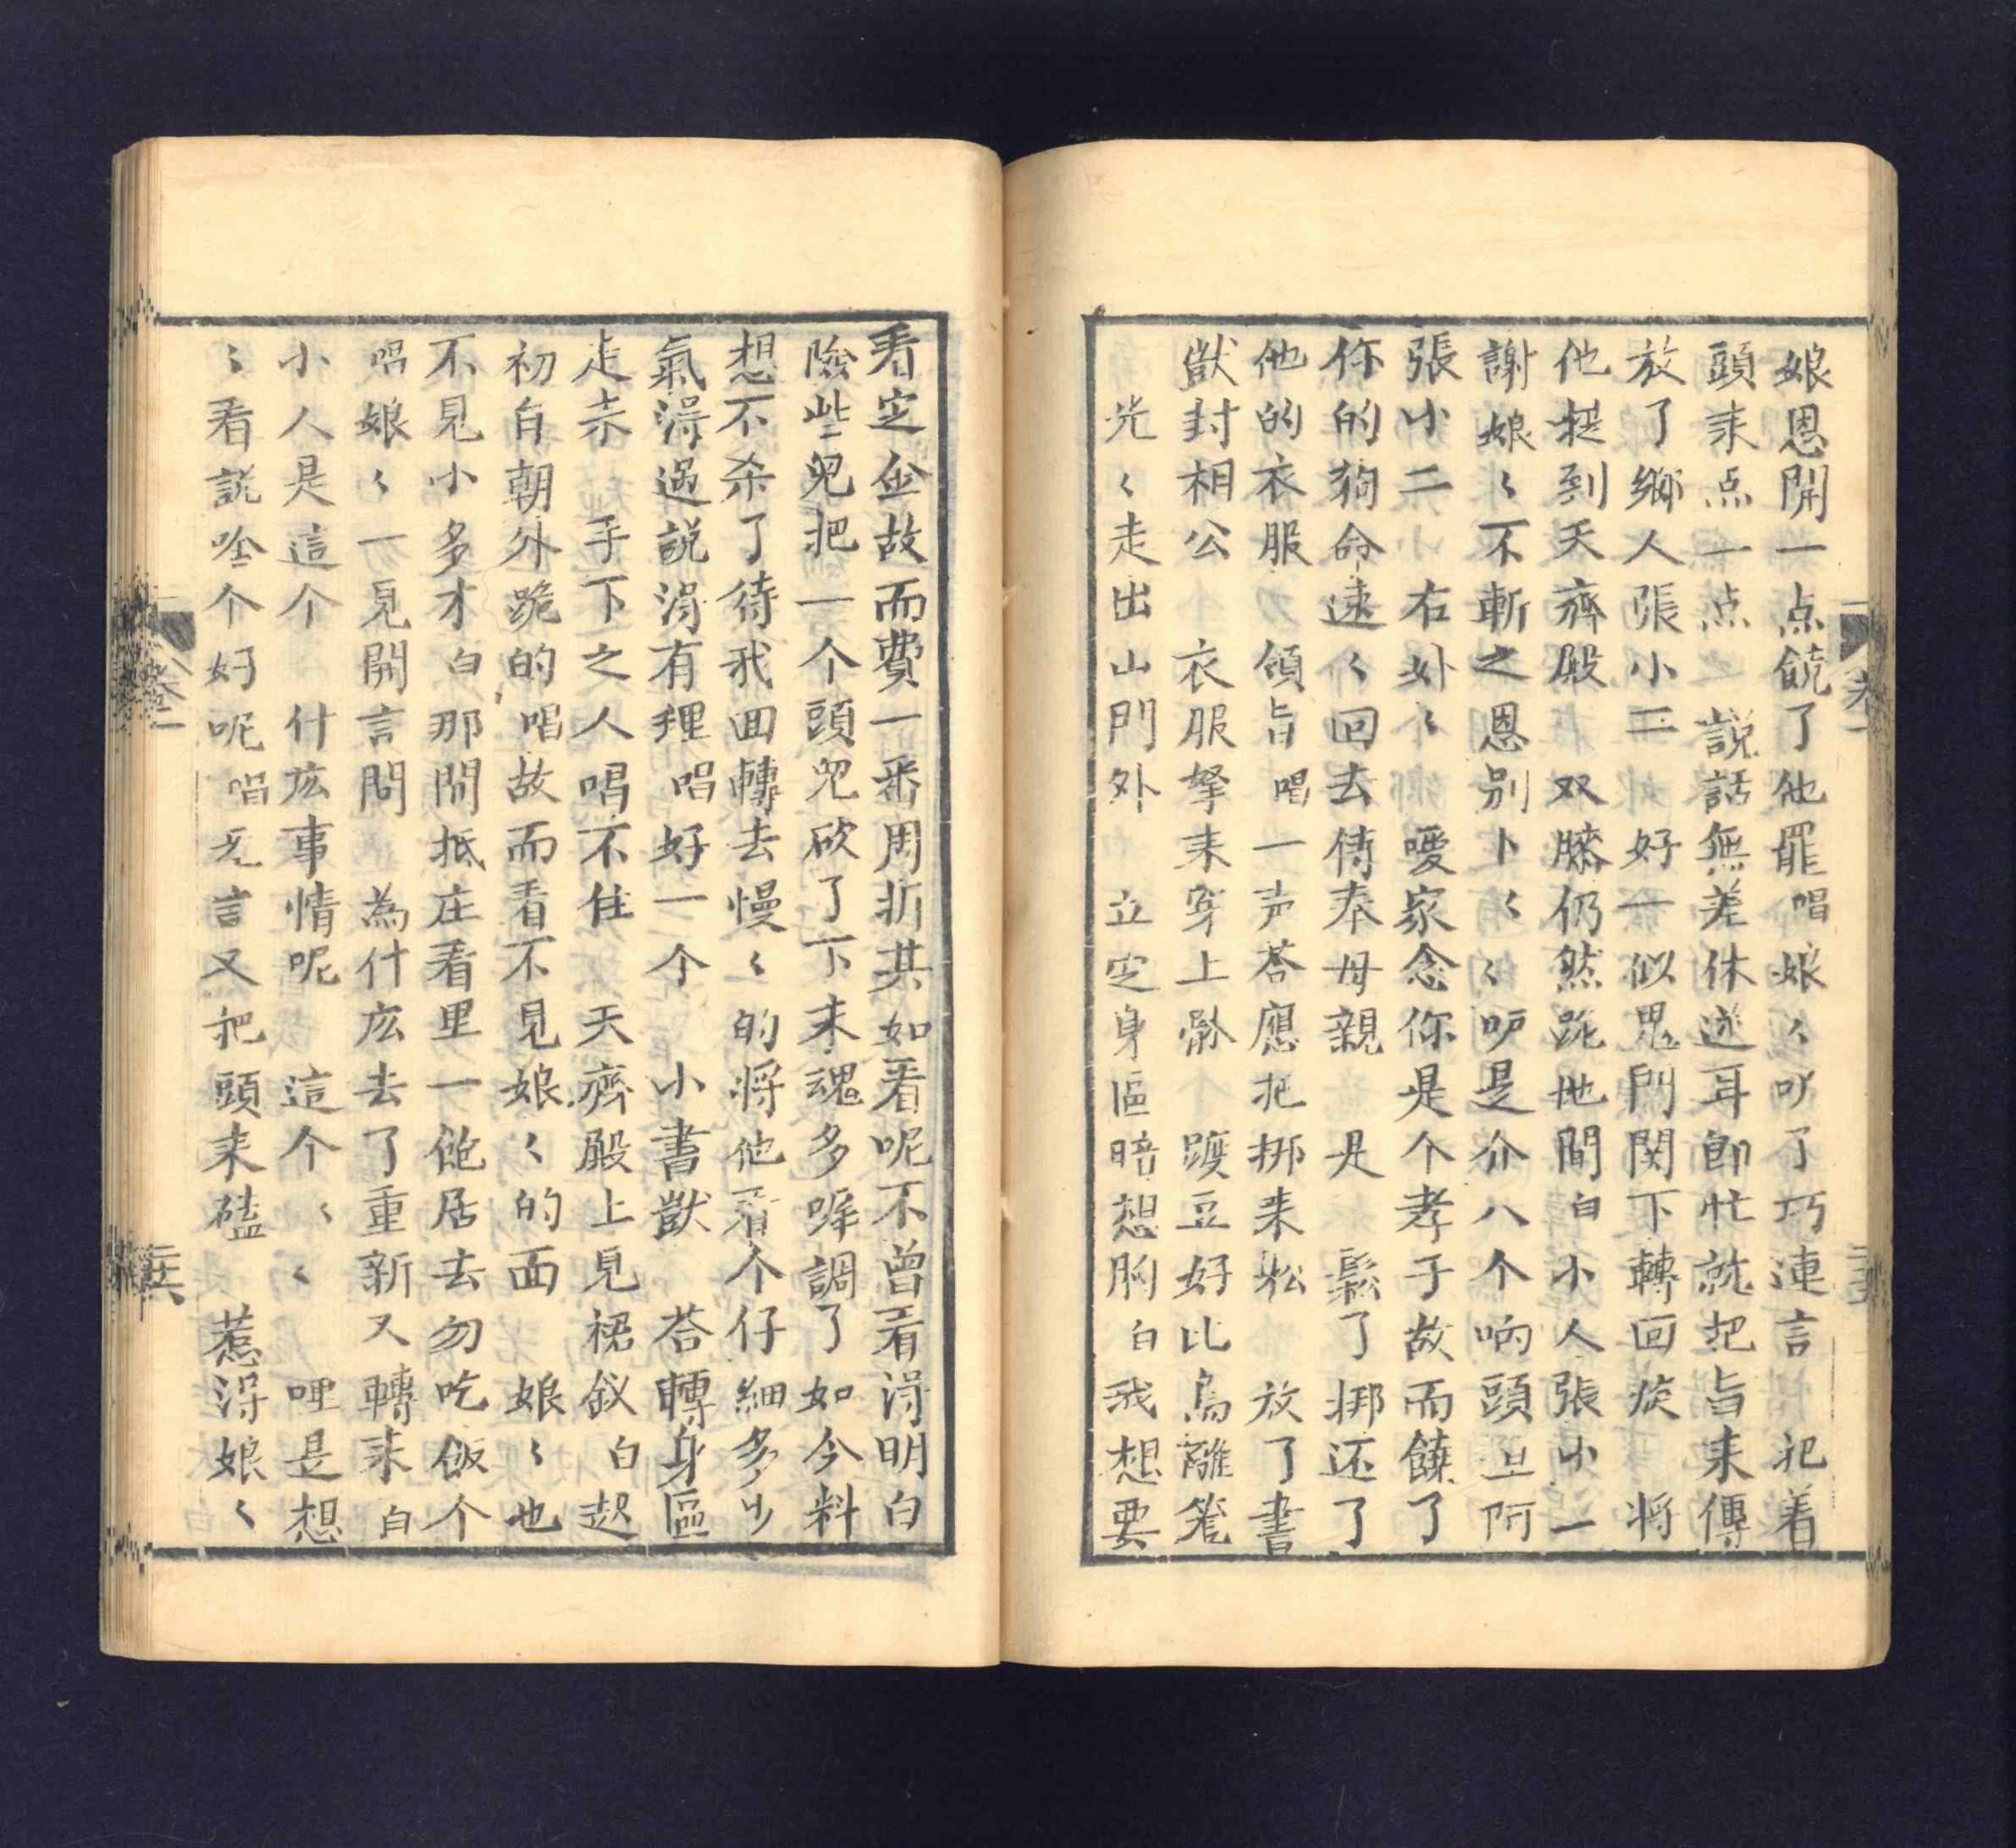 娘恩開一点饒了他罷唱娘〻吖了巧連言　祀着
頭来点一点　說話無差休逆耳即忙就把旨来傳
放了鄉人張小二　好一似鬼門関下轉回疾　将
他挺到天齊殿　双膝仍然跪地間白小人張小一
謝娘〻不斬之恩别卜〻〻吥是介八个响頭旦阿
張小二　右外〻　噯家念你是个孝子故而饒了
你的狗命速〻回去侍奉母親　是　鬆了挷还了
他的衣服　領旨唱一声荅應把挷来松　放了書
獃封相公　衣服拏来穿上躬　踱豆好比鳥離籠
光〻走出山門外　立定身區暗想胸白我想要
看定金故而費一番周折其如看呢不曾看淂明白
險些兒把一个頭兒砍了下来魂多嚇調了如今料
想不杀了待我回轉去慢〻的将他看个仔細多少
氣淂過說淂有理唱好一个　小書獃　荅轉身區
走来　手下之人唱不住　天齊殿上見裙釵白起
初自朝外跪的唱故而看不見娘〻的面　娘〻也
不見小多才白那間抵庄看里一飽居去勿吃飯个
唱娘〻一見開言問　為什庅去了重新又轉来白
小人是這个　什庅事情呢　這个〻〻　哩是想
〻看説唫个好呢唱无言又把頭来磕　惹淂娘〻
卷一
卷一
二十六